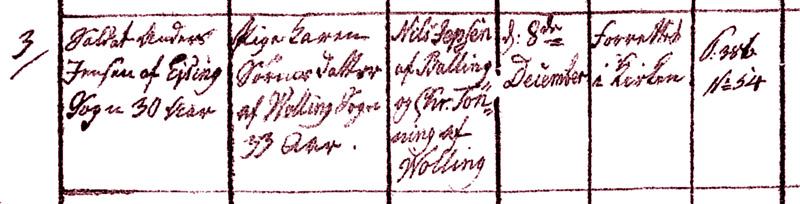 3/
Soldat Anders
Jensen af Eising
Sogn 30 Aar
Pige Karen
Sörensdatter
af Wolling Sogn
33 Aar.
Nils Jepsen
af Balling
og Chr. Tön-
ning af
Wolling
d: 8de
December
Forrettet
i Kirken
P: 386
No 54